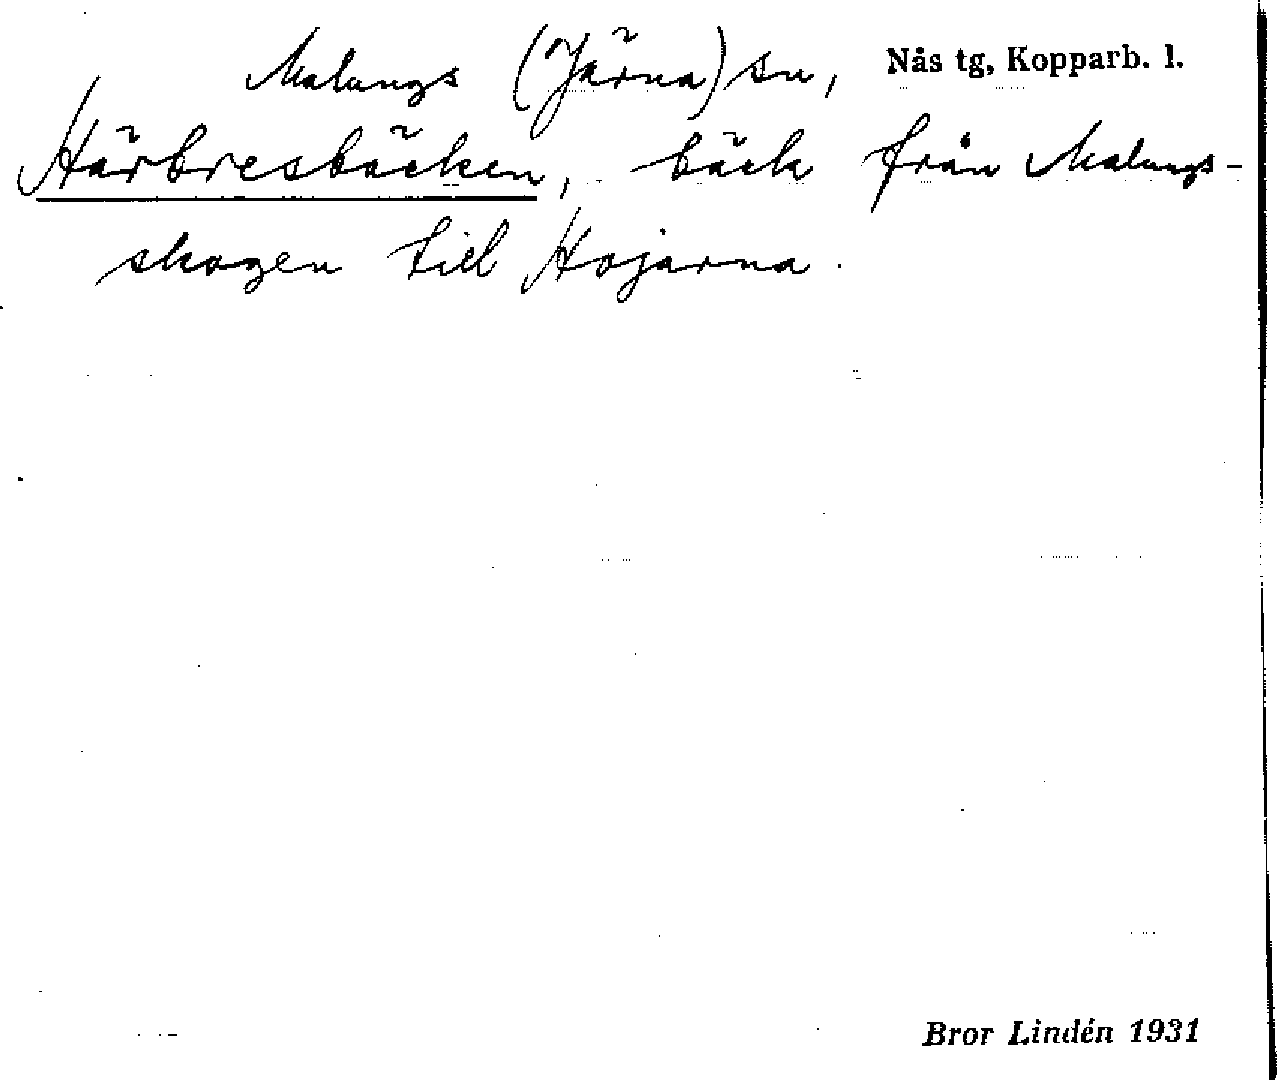 Malungs (Järna) sn, Nås tg, Kopparb. l.
Härbresbäcken, bäck från Malungs-
skogen till Hojarna.
Bror Lindén 1931